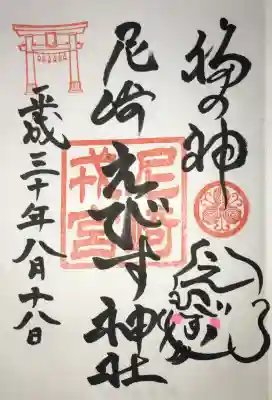 福の神
尼崎えびす神社
平成三十年八月十八日
尼崎
戎宮
えびす